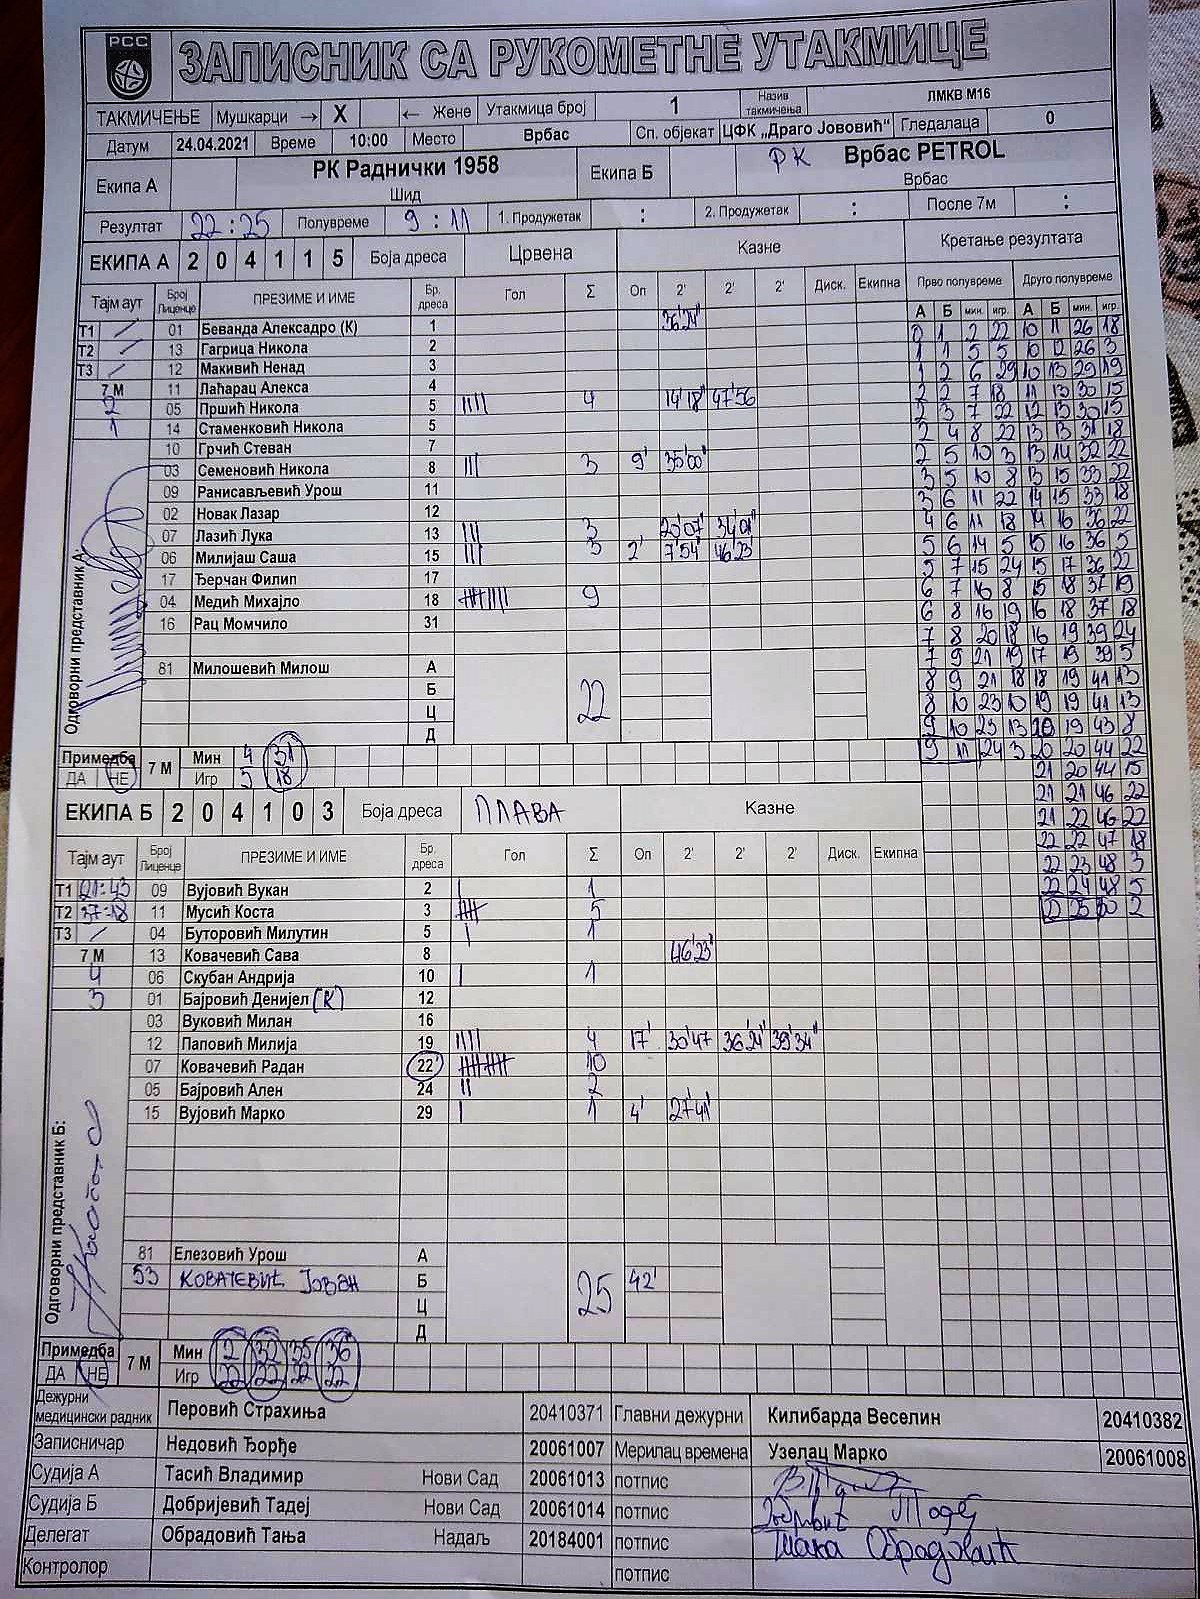 РСС
ЗАПИСНИК СА РУКОМЕТНЕ УТАКМИЦЕ
ТАКМИЧЕЊЕ Мушкарци → X ← Жене Утакмица број 1 Назив такмичења ЛМКВ М16
Датум 24.04.2021 Време 10:00 Место Врбас Сп. објекат ЦФК „Драго Јововић“ Гледалаца 0
Екипа А РК Раднички 1958 Екипа Б РК Врбас PETROL
Шид Врбас
Резултат 22:25 Полувреме 9:11 1. Продужетак : 2. Продужетак : После 7м :
ЕКИПА А 2 0 4 1 1 5 Боја дреса Црвена Казне Кретање резултата
Тајм аут Број Лиценце ПРЕЗИМЕ И ИМЕ Бр. дреса Гол Σ Оп 2' 2' 2' Диск. Екипна Прво полувреме Друго полувреме
А Б мин. игр. А Б мин. игр.
Т1 / 01 Беванда Алексадро (К) 1 36'24" 0 1 2 22 10 11 26 18
Т2 / 13 Гагрица Никола 2 1 1 5 5 10 12 26 3
Т3 / 12 Макивић Ненад 3 1 2 6 29 10 13 29 19
7 М 11 Лаћарац Алекса 4 2 2 7 18 11 13 30 15
2 05 Пршић Никола 5 |||| 4 14'18" 47'56 2 3 7 22 12 13 30 15
1 14 Стаменковић Никола 5 2 4 8 22 13 13 31 18
10 Грчић Стеван 7 2 5 10 3 13 14 32 22
03 Семеновић Никола 8 ||| 3 9' 35'00" 3 5 10 8 13 15 33 22
09 Ранисављевић Урош 11 3 6 11 22 14 15 33 18
02 Новак Лазар 12 4 6 11 18 14 16 36 22
07 Лазић Лука 13 ||| 3 20'07" 34'01" 5 6 14 5 15 16 36 5
06 Милијаш Саша 15 ||| 3 2' 7'54" 46'23" 5 7 15 24 15 17 36 22
17 Ђерчан Филип 17 6 7 16 8 15 18 37 19
04 Медић Михајло 18 9 6 8 16 19 16 18 37 18
16 Рац Момчило 31 7 8 20 18 16 19 39 24
7 9 21 19 17 19 39 5
81 Милошевић Милош А 8 9 21 18 18 19 41 13
Б 22 8 10 23 10 19 19 41 13
Ц 9 10 23 13 20 19 43 8
Д 9 11 24 3 20 20 44 22
Одговорни представник А:
Примедба 7 М Мин 4 31 21 20 44 15
ДА НЕ Игр 5 18 21 21 46 22
ЕКИПА Б 2 0 4 1 0 3 Боја дреса ПЛАВА Казне 21 22 46 22
22 22 47 18
Тајм аут Број Лиценце ПРЕЗИМЕ И ИМЕ Бр. дреса Гол Σ Оп 2' 2' 2' Диск. Екипна 22 23 48 3
Т1 21:43 09 Вујовић Вукан 2 | 1 22 24 48 5
Т2 37:18 11 Мусић Коста 3 5 25 50 2
Т3 / 04 Буторовић Милутин 5 | 1
7 М 13 Ковачевић Сава 8 46'23"
4 06 Скубан Андрија 10 | 1
3 01 Бајровић Денијел (К) 12
03 Вуковић Милан 16
12 Паповић Милија 19 |||| 4 17' 30'47 36'24" 39'34"
07 Ковачевић Радан 22 10
05 Бајровић Ален 24 || 2
15 Вујовић Марко 29 | 1 4' 27'41"
Одговорни представник Б:
81 Елезовић Урош А
53 КОВАЧЕВИЋ ЈОВАН Б 25 42'
Ц
Д
Примедба 7 М Мин 2 32 35 36
ДА НЕ Игр 22 22 22 22
Дежурни медицински радник Перовић Страхиња 20410371 Главни дежурни Килибарда Веселин 20410382
Записничар Недовић Ђорђе 20061007 Мерилац времена Узелац Марко 20061008
Судија А Тасић Владимир Нови Сад 20061013 потпис
Судија Б Добријевић Тадеј Нови Сад 20061014 потпис
Делегат Обрадовић Тања Надаљ 20184001 потпис Тања Обрадовић
Контролор потпис